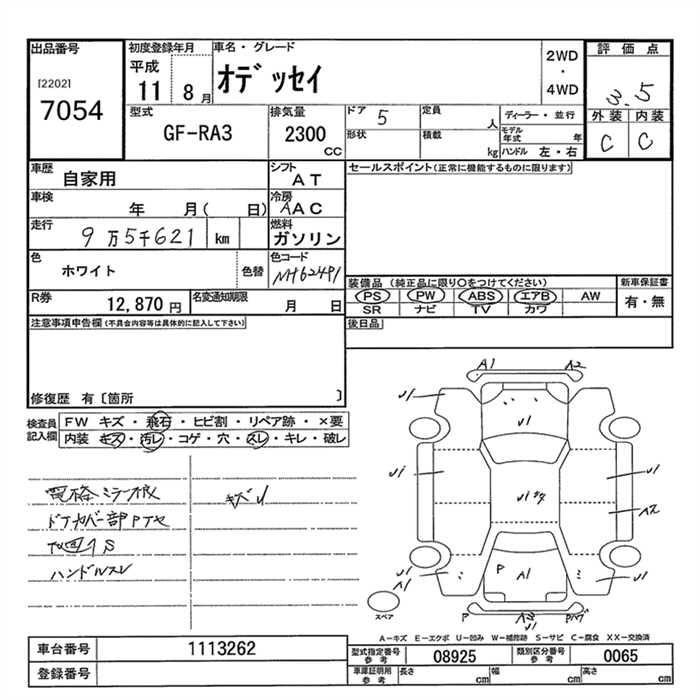 出品番号
[2202]
7054
初度登録年月
平成
11 8 月
車名・グレード
オデッセイ
2WD
・
4WD
評価点
3.5
外装 内装
C C
型式
GF-RA3
排気量
2300
CC
ドア 5
定員
人
形状
積載
kg
ディーラー・並行
モデル
年式 年
ハンドル 左・右
車歴
自家用
シフト
AT
セールスポイント(正常に機能するものに限ります)
車検
年 月( 日)
冷房
AAC
走行
9万5千621 km
燃料
ガソリン
色
ホワイト
色替
色コード
NH624P1
装備品 (純正品に限り○をつけてください)
PS PW ABS エアB AW
SR ナビ TV カワ
新車保証書
有・無
R券
12,870 円
名変通知期限
月 日
後日品
注意事項申告欄(不具合内容等は具体的に記入して下さい)
修復歴 有〔箇所 〕
検査員
記入欄
FW キズ・飛石・ヒビ割・リペア跡・×要
内装 キズ・汚レ・コゲ・穴・スレ・キレ・破レ
キズU
ハンドルスレ
A1 A2
U1
U1
U1
U1
U1
A2
P
A1
U1
A1
U1
P
A3
U1
スペア
A―キズ E―エクボ U―凹み W―補修跡 S―サビ C―腐食 XX―交換済
車台番号
1113262
登録番号
型式指定番号
参考
08925
類別区分番号
参考
0065
車庫証明用
参考
長さ cm 幅 cm 高さ cm